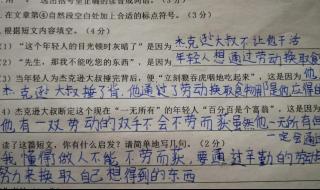 2. 在文章第④自然段空白处加上合适的标点符号。(3分)
根据短文内容填空。(4分)
(1) "这个年轻人的目光顿时灰暗了"是因为杰克逊大叔不让他干活
(2) "先生，那我不能吃您的东西"，是因为年轻人想通过劳动换取食
(3) 当年轻人为杰克逊大叔捶完背后，便"立刻狼吞虎咽地吃起来"，这是因为他
杰克逊大叔捶了背，他通过了劳动换取食物是他应得
(4) 杰克逊大叔断定这个现在"一无所有"的年轻人"百分百是个富翁"，这是因为
他有一双劳动的双手不会不劳而获虽然他一无所有但
一定会通
读了这篇短文，你有什么启发？请简单地写几句。
我懂得做人不能不劳而获，要通过辛勤的劳动
努力来换取自己想得到的东西